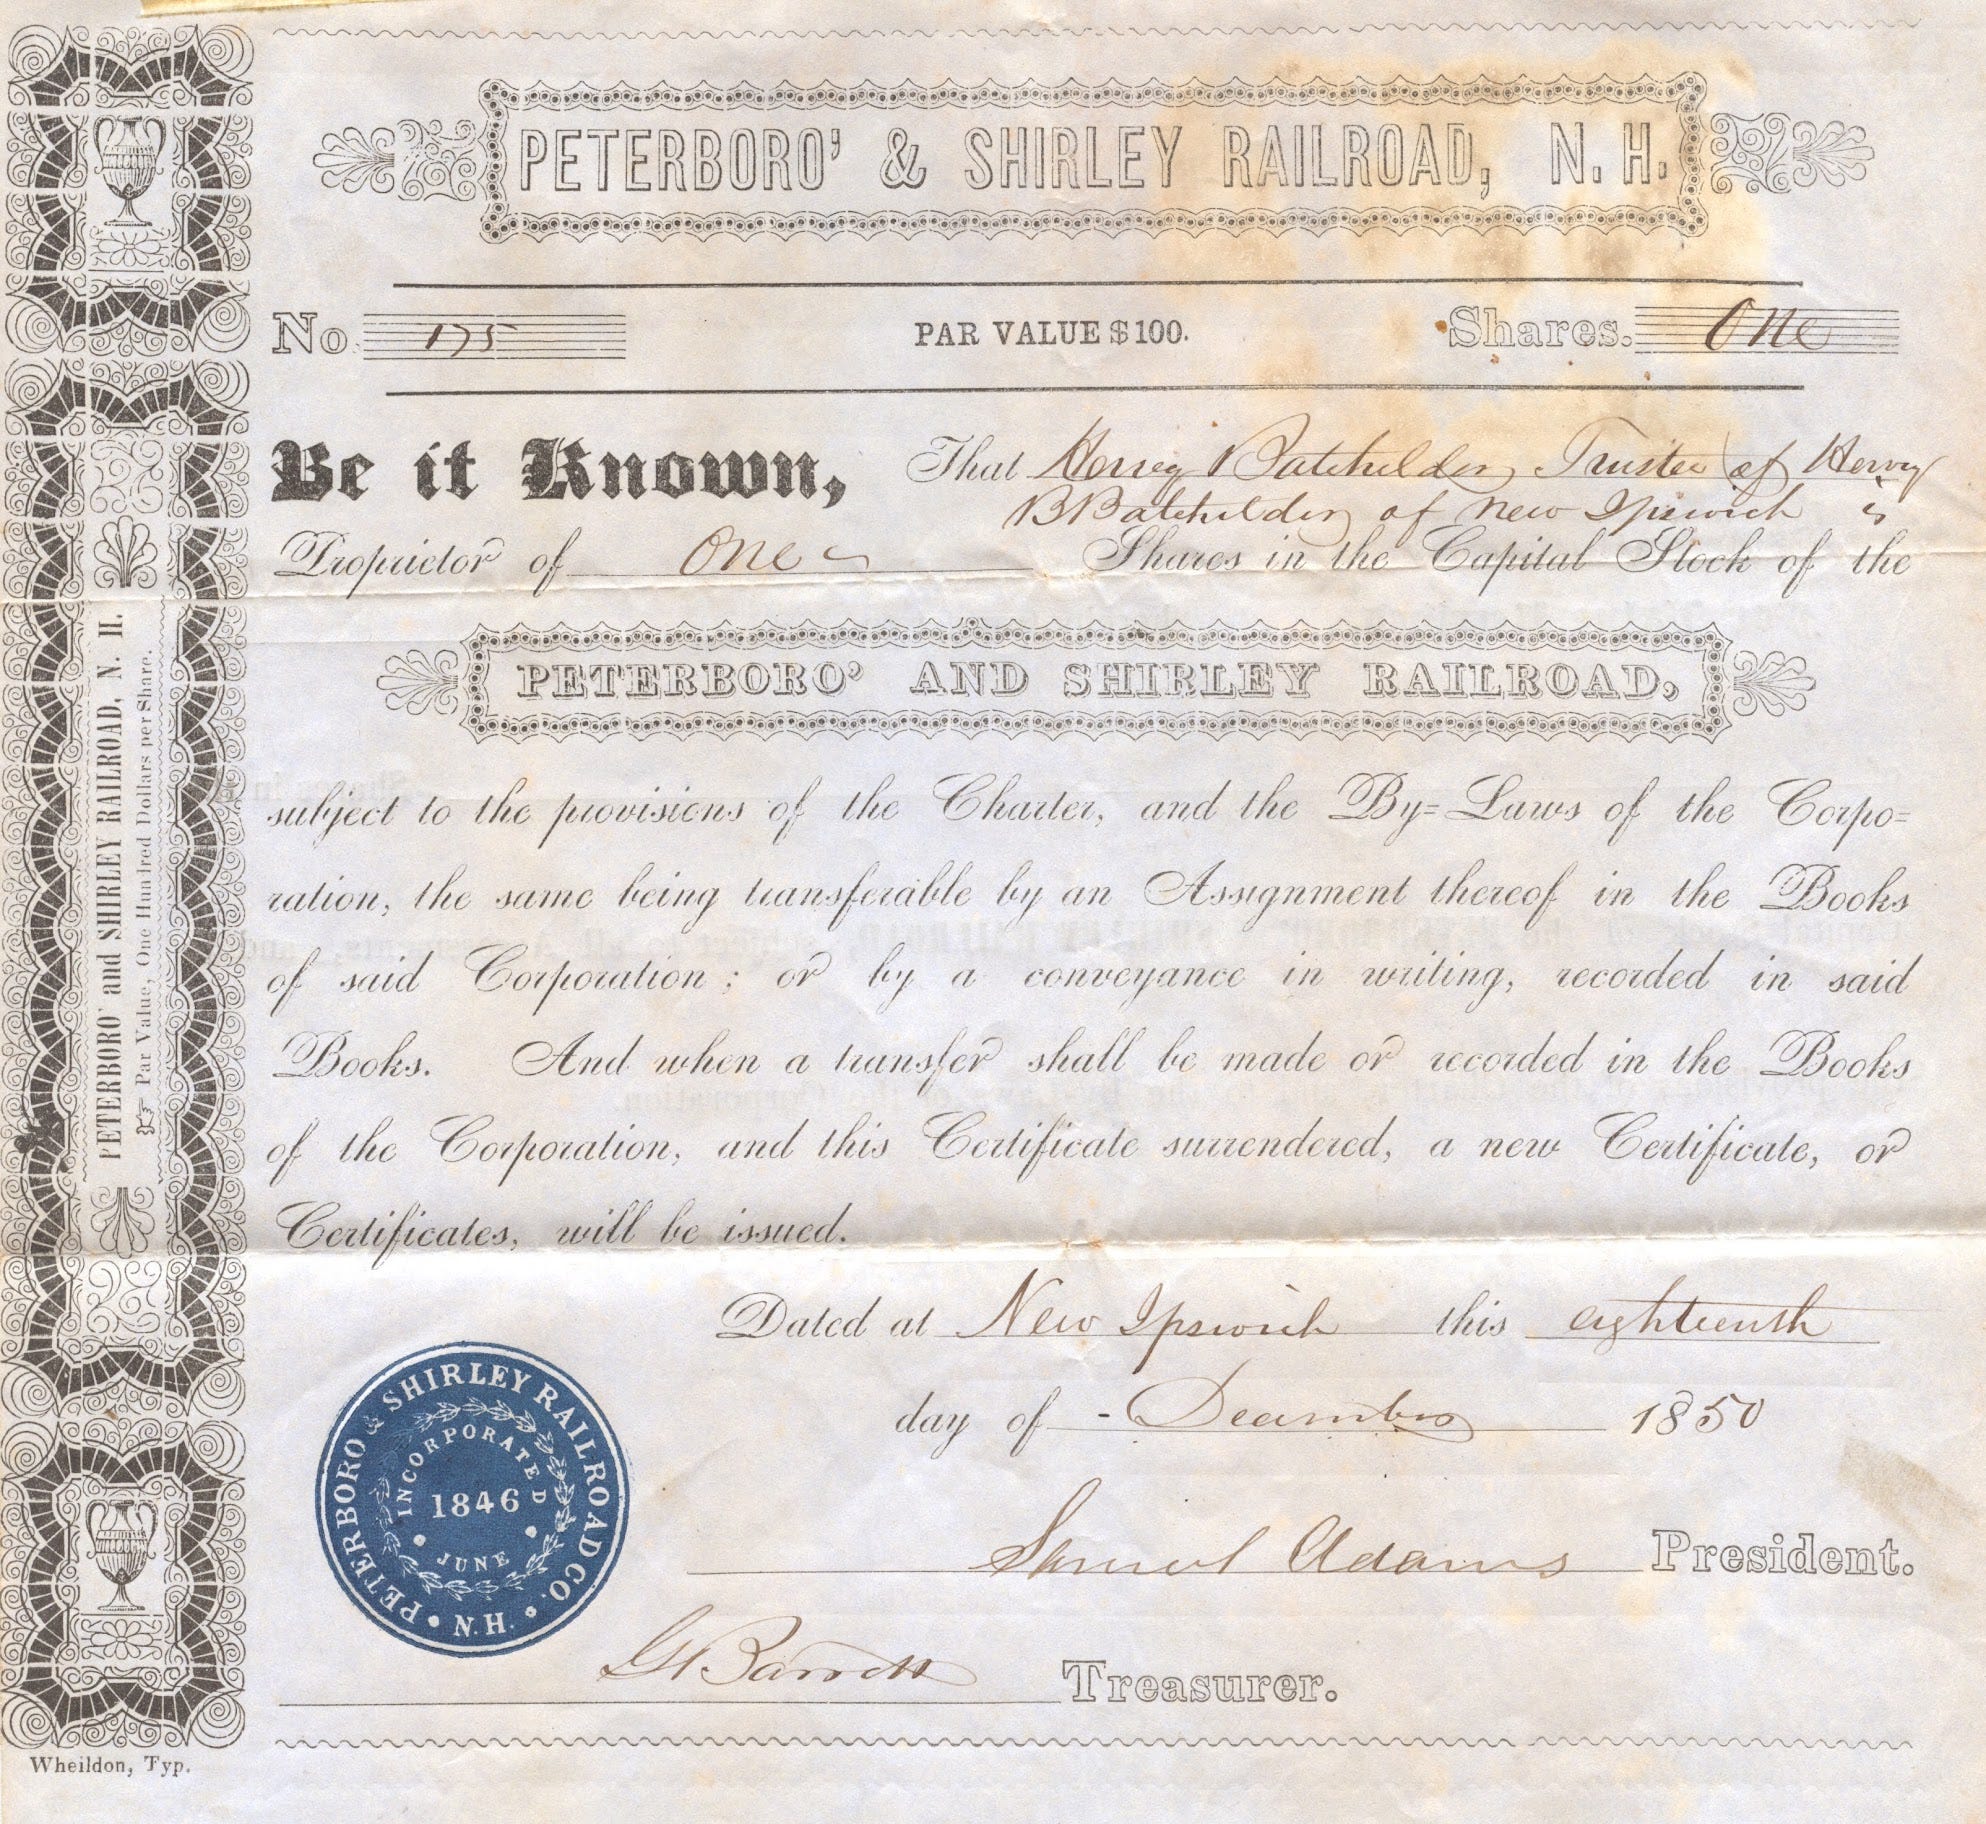 PETERBORO' & SHIRLEY RAILROAD, N. H.
No. 175 PAR VALUE $100. Shares. One
Be it Known, That Hervey Batchelder Trustee of Hervey
B Batchelder of New Ipswich is
Proprietor of One Shares in the Capital Stock of the
PETERBORO' AND SHIRLEY RAILROAD,
subject to the provisions of the Charter, and the By=Laws of the Corpo=
ration, the same being transferable by an Assignment thereof in the Books
of said Corporation; or by a conveyance in writing, recorded in said
Books. And when a transfer shall be made or recorded in the Books
of the Corporation, and this Certificate surrendered, a new Certificate, or
Certificates, will be issued.
Dated at New Ipswich this eighteenth
day of - December 1850
Samuel Adams President.
G Barrett Treasurer.
PETERBORO & SHIRLEY RAILROAD CO.
• N.H. •
INCORPORATED
1846
• JUNE •
PETERBORO' and SHIRLEY RAILROAD, N. H.
☞ Par Value, One Hundred Dollars per Share.
Wheildon, Typ.